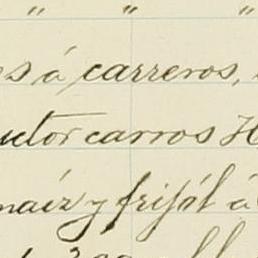 " " "
es á carreros,
uctor carros H
maíz y frijól á